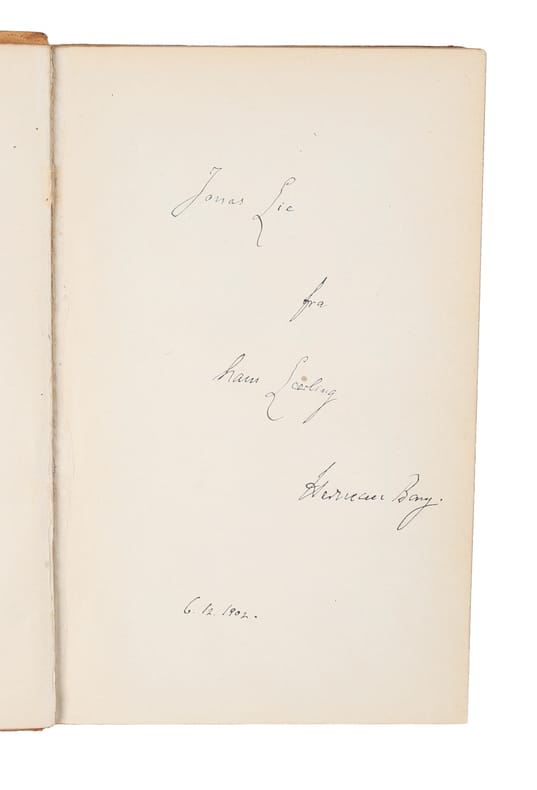 Jonas Lie
fra
hans Lærling
Herman Bang.
6. 12. 1902.